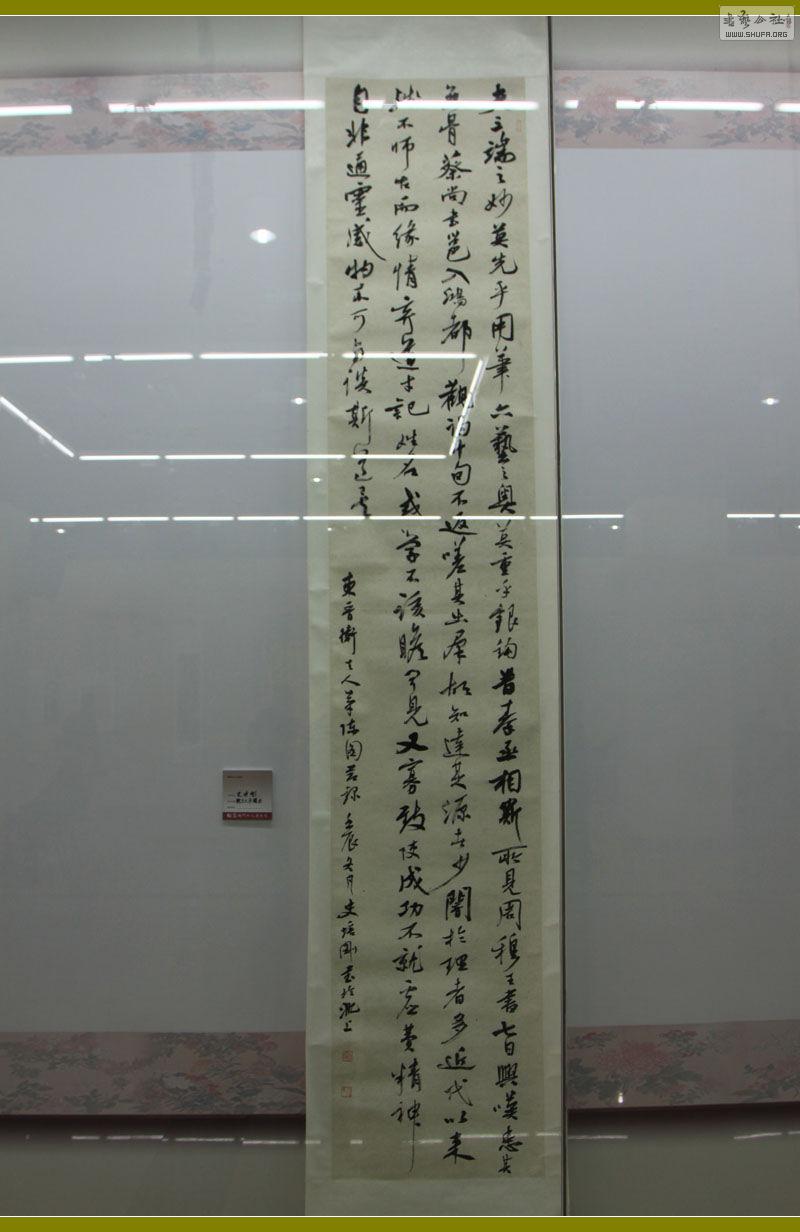 夫三端之妙莫先乎用筆六藝之奥莫重乎銀鉤昔李丞相斯所見周穆王書七日興嘆患其
無骨蔡尚書邕入鴻都觀碣十旬不返嗟其出群故知達其源者少闇於理者多近代以来
殊不師古而緣情弃道才記姓名或学不該贍聞見又寡致使成功不就虚費精神
自非通靈感物不可与谈斯道矣
東晋衛夫人筆陣图节録壬辰冬月史培剛書於淝上
書藝公社
WWW.SHUFA.ORG